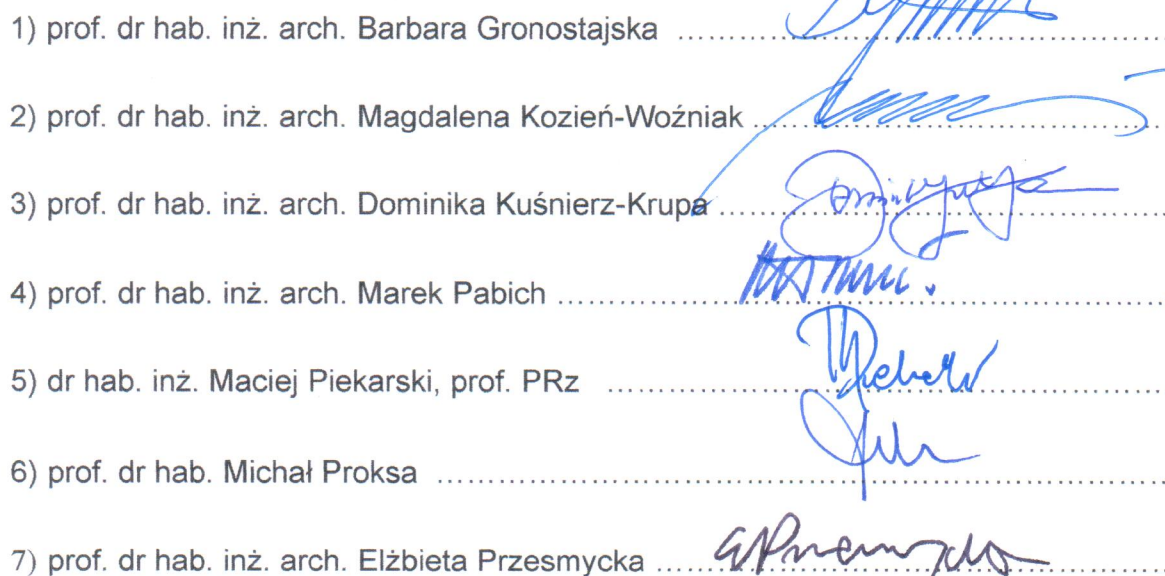 1) prof. dr hab. inż. arch. Barbara Gronostajska ....................
2) prof. dr hab. inż. arch. Magdalena Kozień-Woźniak ....................
3) prof. dr hab. inż. arch. Dominika Kuśnierz-Krupa ....................
4) prof. dr hab. inż. arch. Marek Pabich ....................
5) dr hab. inż. Maciej Piekarski, prof. PRz ....................
6) prof. dr hab. Michał Proksa ....................
7) prof. dr hab. inż. arch. Elżbieta Przesmycka ....................